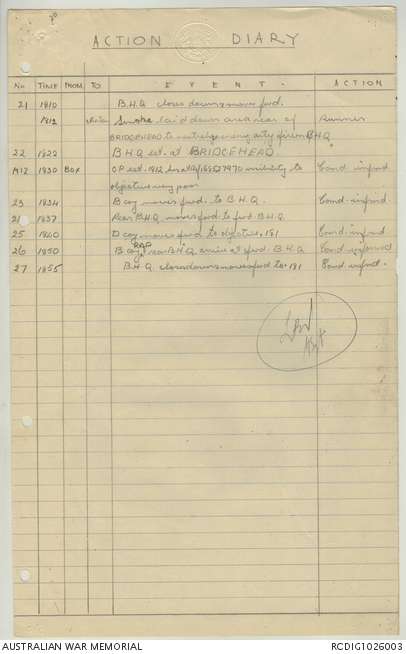 ACTION DIARY
No. TIME FROM TO EVENT. ACTION
21 1810 B.H.Q. closes down & moves fwd.
1812 Smoke laid down area rear of Runner
BRIDGEHEAD to neutralize enemy arty fire on B.HQ
22 1822 B.H.Q est. at BRIDGEHEAD.
1912 1830 BOX OP est. visibility to Comd. infmd
objective very poor
23 1834 B coy moves fwd. to B.H.Q. Comd. infmd
21 1837 Rear B.H.Q. moves fwd. to fwd B.H.Q.
25 1840 D coy moves fwd to objective, 181 Comd. infmd
26 1850 B coy, RAP, rear B.H.Q. arrive at fwd. B.H.Q Comd. infmd
27 1855 B.H.Q. closes down & moves fwd to 181 Comd. infmd.
AUSTRALIAN WAR MEMORIAL RCDIG1026003